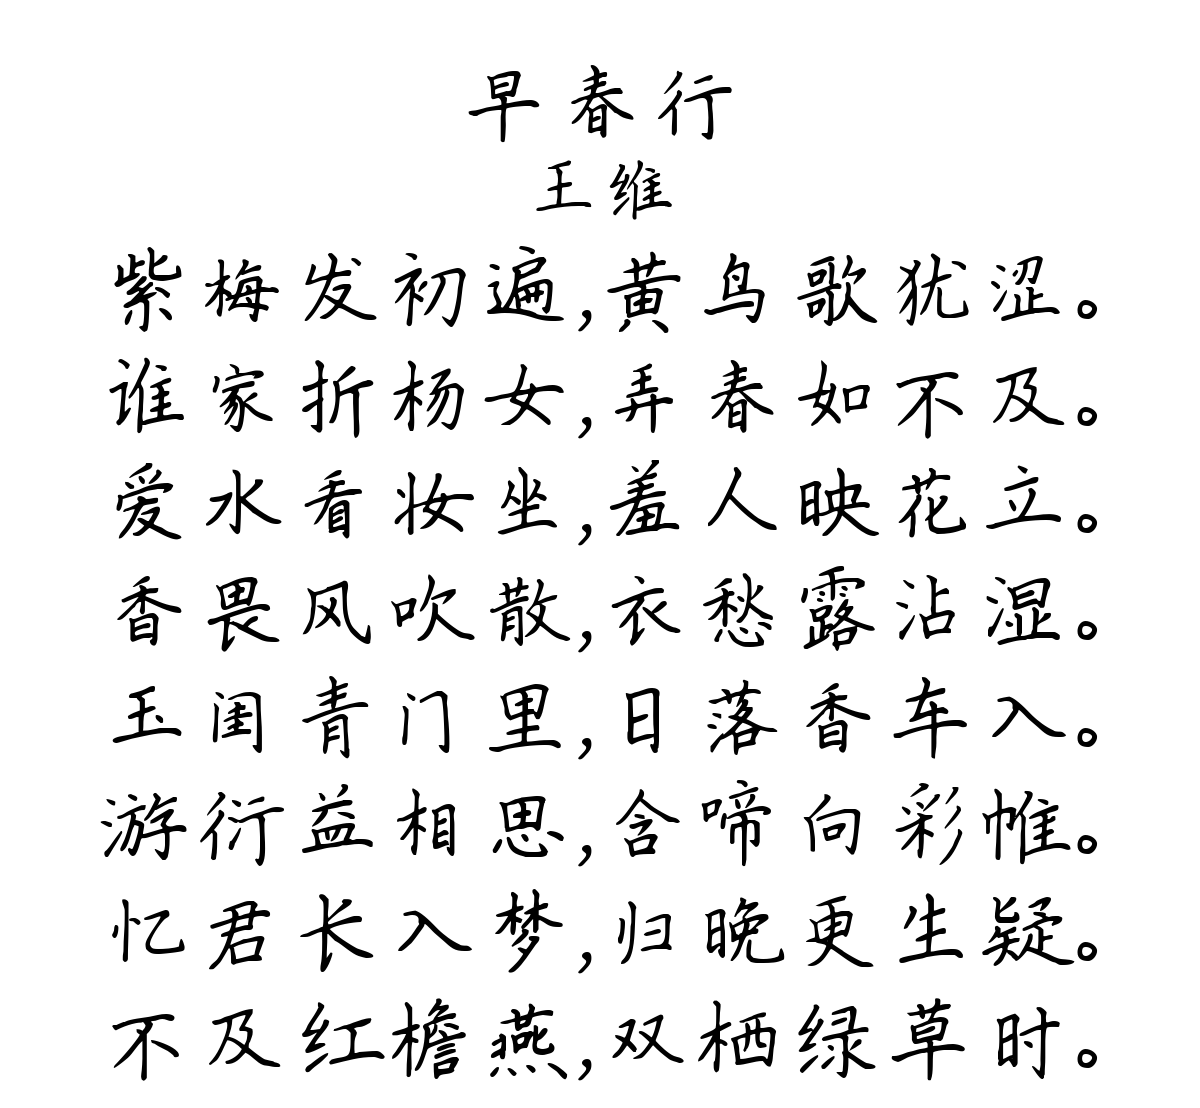 早春行
王维
紫梅发初遍,黄鸟歌犹涩。
谁家折杨女,弄春如不及。
爱水看妆坐,羞人映花立。
香畏风吹散,衣愁露沾湿。
玉闺青门里,日落香车入。
游衍益相思,含啼向彩帷。
忆君长入梦,归晚更生疑。
不及红檐燕,双栖绿草时。